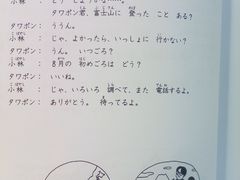 小林： どうしようかな……。
タワポン君、富士山に 登った こと ある？
タワポン： ううん。
小林： じゃ、よかったら、いっしょに 行かない？
タワポン： うん。 いつごろ？
小林： 8月の 初めごろは どう？
タワポン： いいね。
小林： じゃ、いろいろ 調べて、また 電話するよ。
タワポン： ありがとう。 待ってるよ。